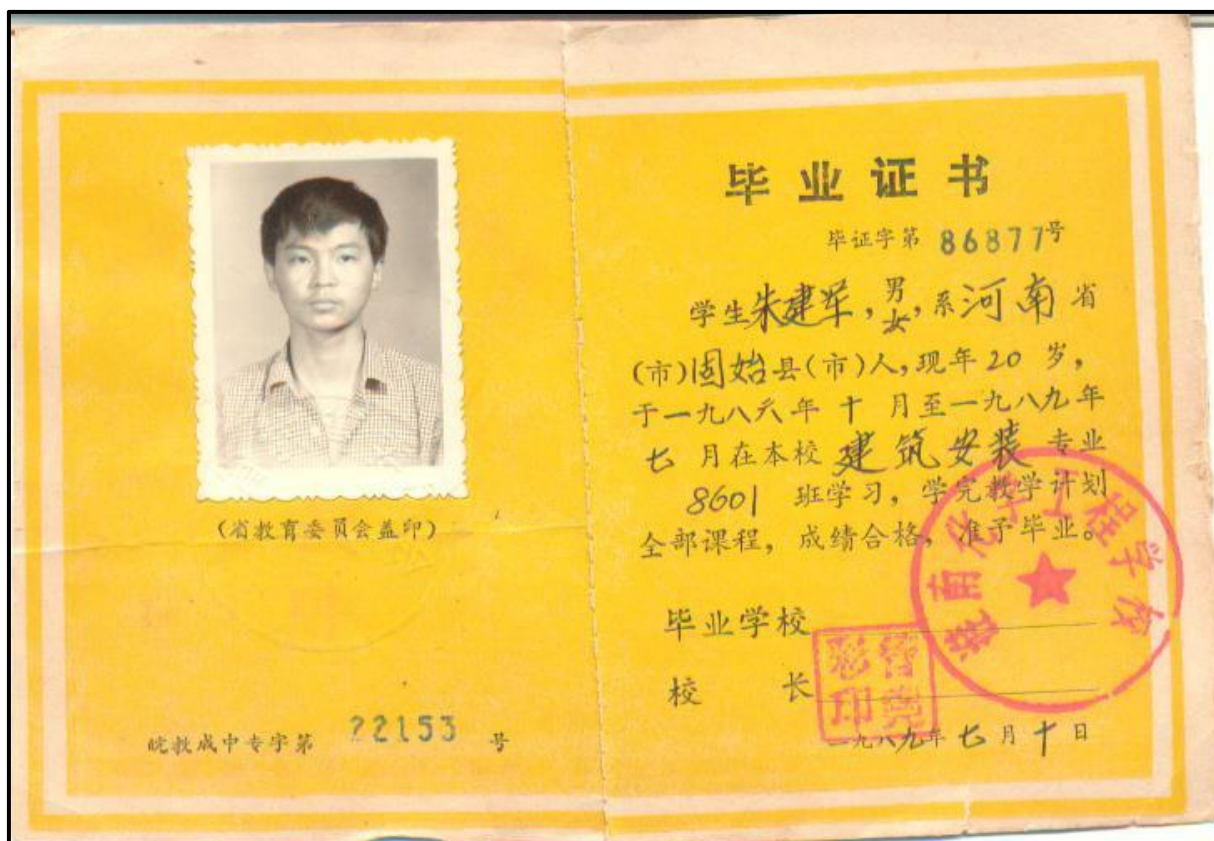 (省教育委员会盖印)
皖教成中专字第 22153 号
毕业证书
毕证字第 86877号
学生朱建军,男/女,系河南省
(市)固始县(市)人,现年20岁,
于一九八六年十月至一九八九年
七月在本校建筑安装专业
8601班学习,学完教学计划
全部课程,成绩合格,准予毕业。
毕业学校
校长
一九八九年七月十日
淮南化学工程学校